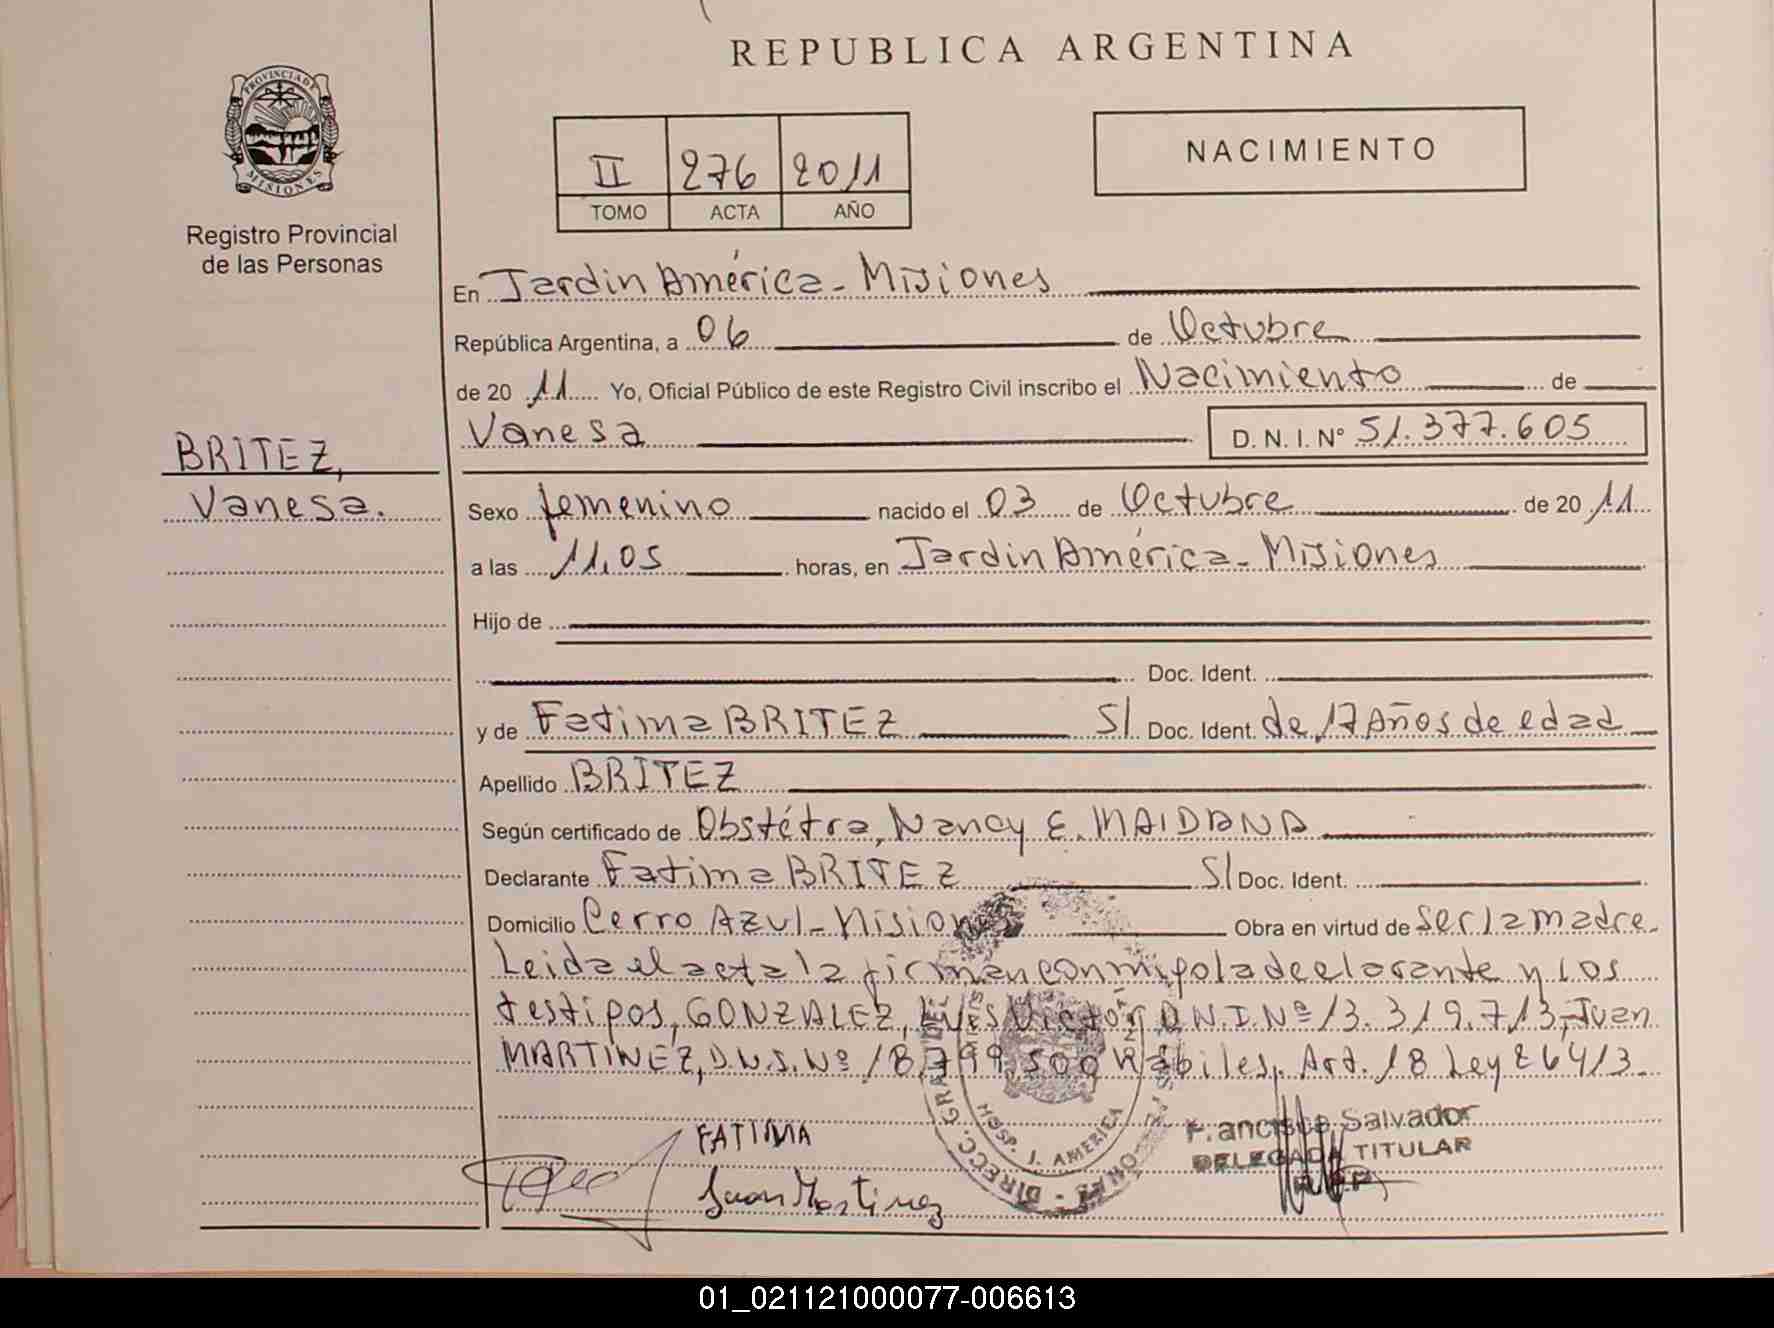 REPUBLICA ARGENTINA
PROVINCIA DE
MISIONES
Registro Provincial
de las Personas
II 276 2011
TOMO ACTA AÑO
NACIMIENTO
En Jardin América - Misiones
República Argentina, a 06 de Octubre
de 20 11 Yo, Oficial Público de este Registro Civil inscribo el Nacimiento de
Vanesa D. N. I. Nº 51.377.605
BRITEZ,
Vanesa.
Sexo femenino nacido el 03 de Octubre de 20 11
a las 11,05 horas, en Jardin América - Misiones
Hijo de
Doc. Ident.
y de Fatima BRITEZ S/ Doc. Ident. de 17 Años de edad
Apellido BRITEZ
Según certificado de Obstétra, Nancy E. MAIDANA
Declarante Fatima BRITEZ S/ Doc. Ident.
Domicilio Cerro Azul - Misiones Obra en virtud de ser la madre.
Leida el acta la firman conmigo la declarante y los
testigos, GONZALEZ, Luis Victor D.N.I. Nº 13.319.713, Juan
MARTINEZ, D.N.I. Nº 18.799.500 Hábiles, Art. 18 Ley 26413
FATIMA
Juan Martinez
HOSP. J. AMERICA
Francisca Salvador
DELEGADA TITULAR
01_021121000077-006613